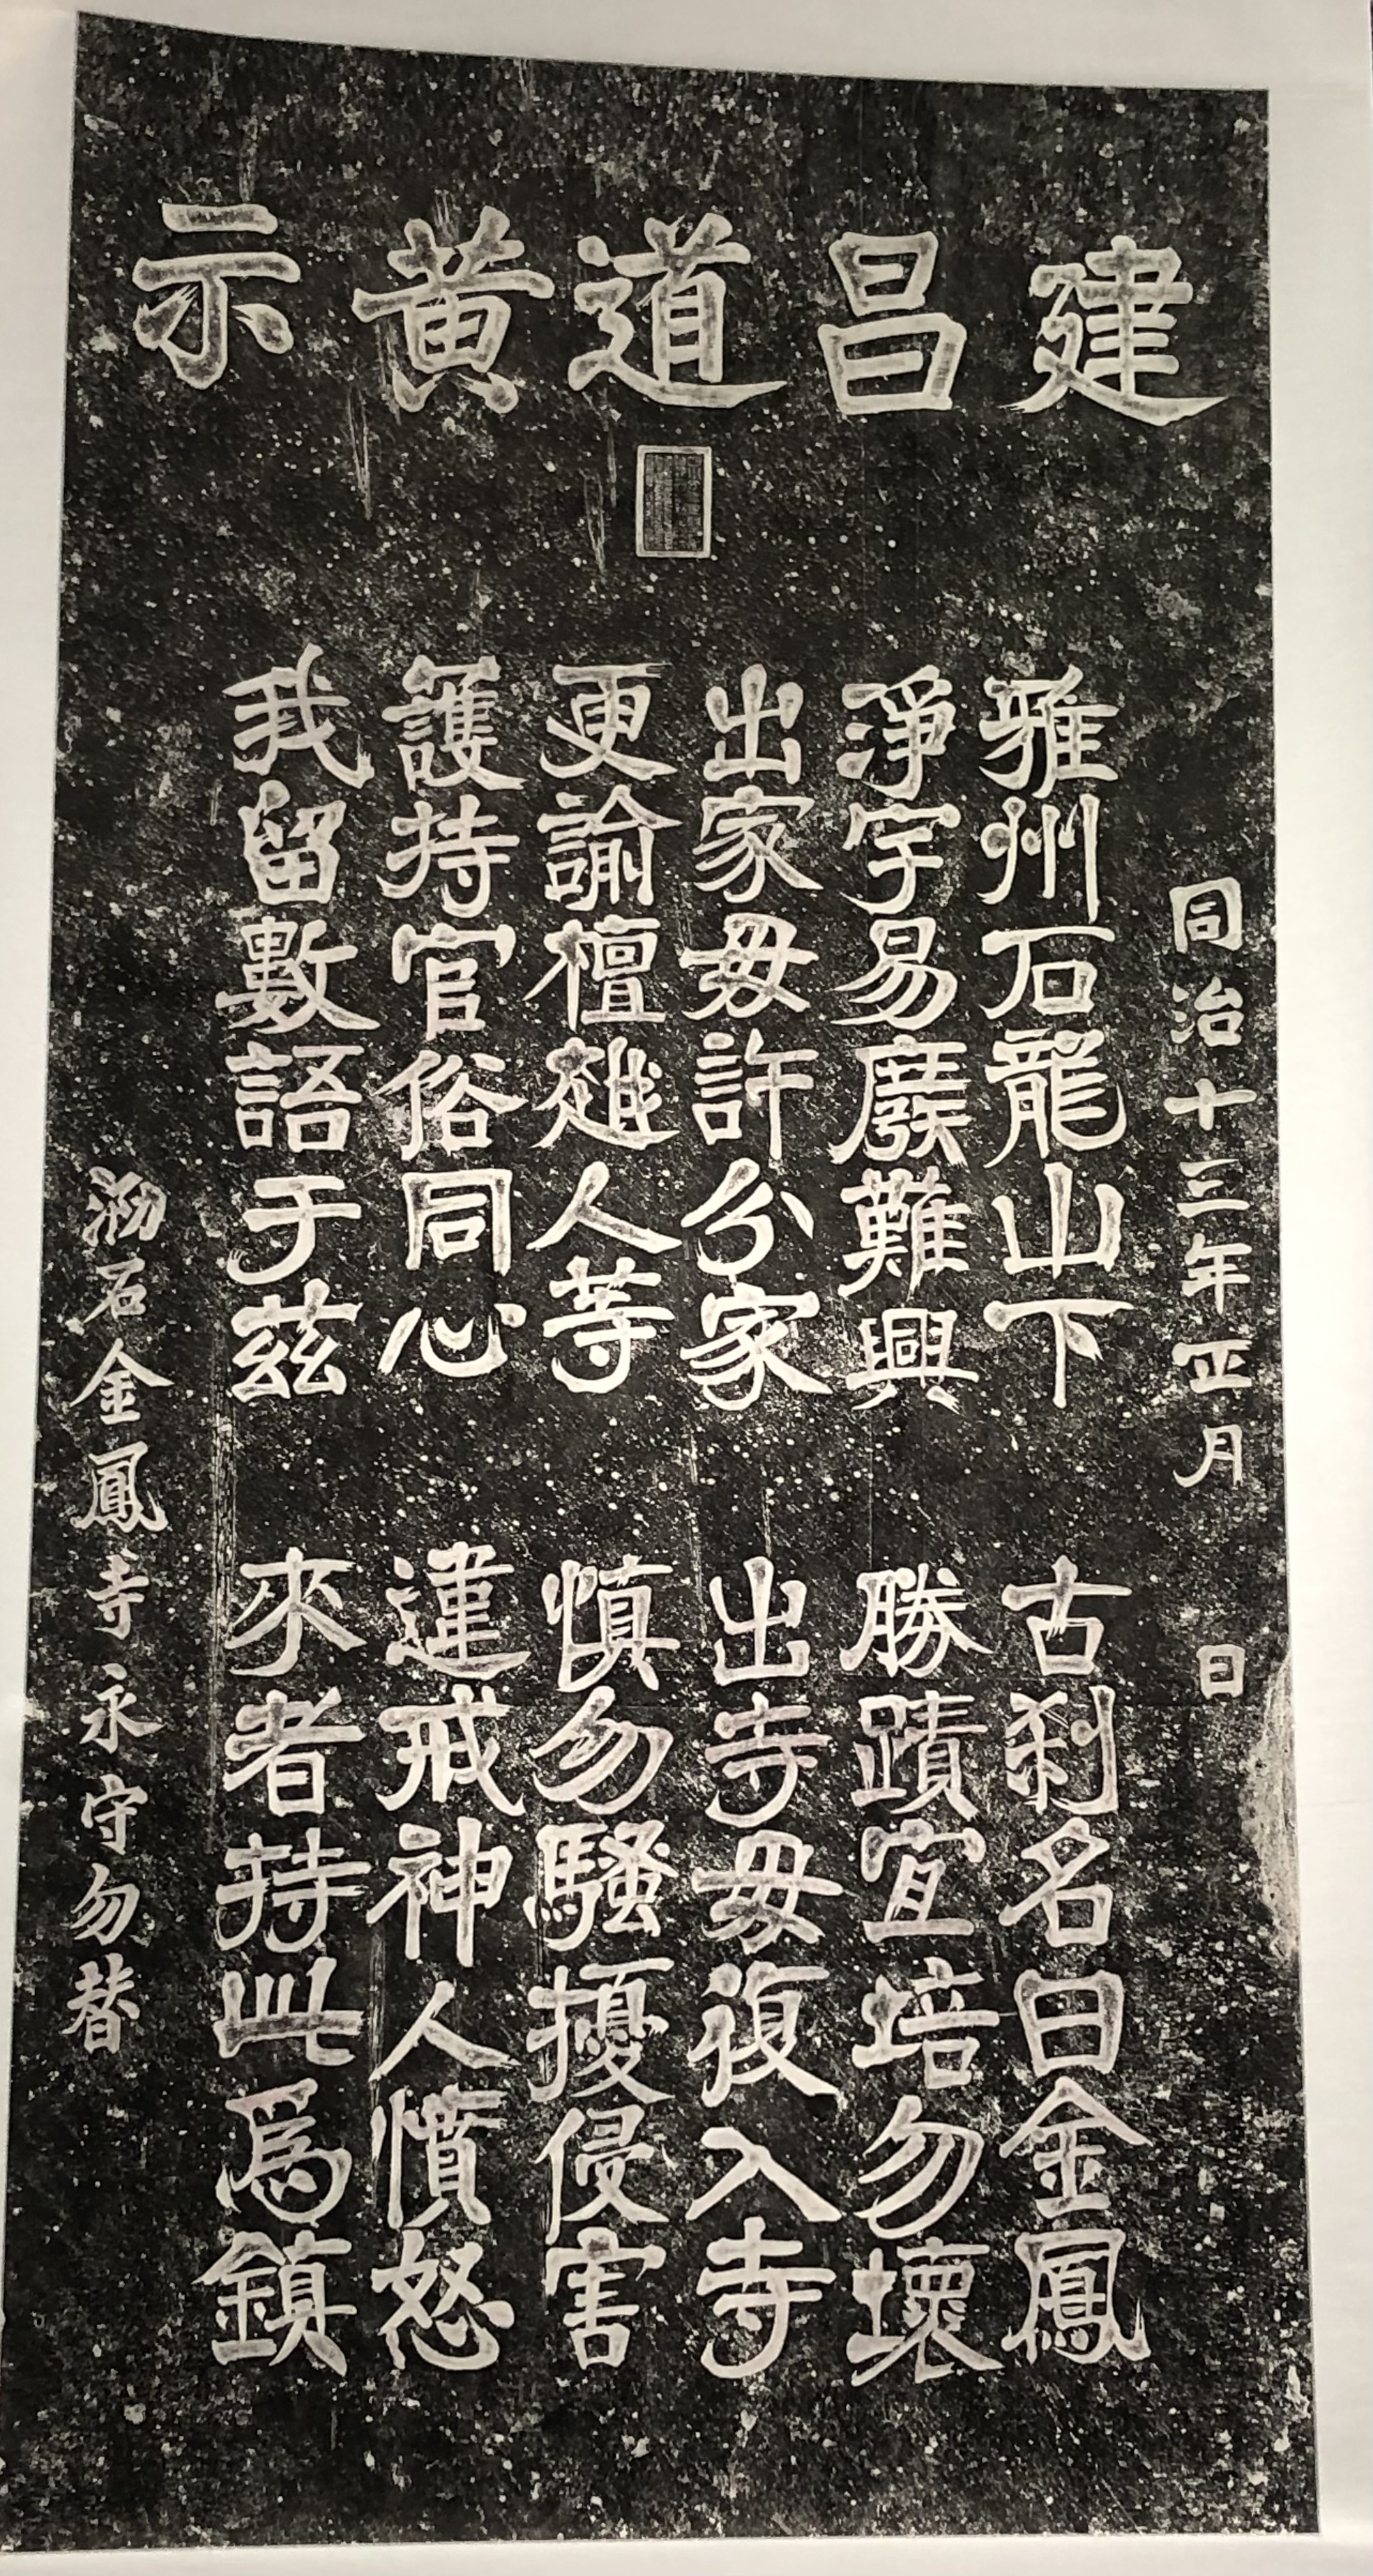 建昌道黃示
同治十三年正月 日
雅州石龍山下 古刹名曰金鳳
淨宇易廢難興 勝蹟宜培勿壞
出家毋許分家 出寺毋復入寺
更諭檀越人等 慎勿騷擾侵害
護持官俗同心 違戒神人憤怒
我留數語于茲 來者持此爲鎮
泐石金鳳寺永守勿替